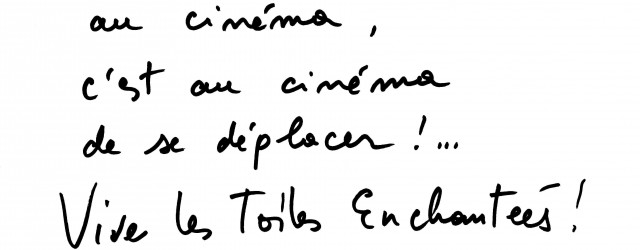 au cinéma,
c'est au cinéma
de se déplacer !...
Vive les Toiles Enchantées !